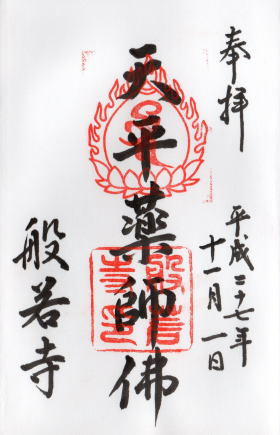 奉拝
平成二十七年
十一月一日
天平薬師佛
般若寺